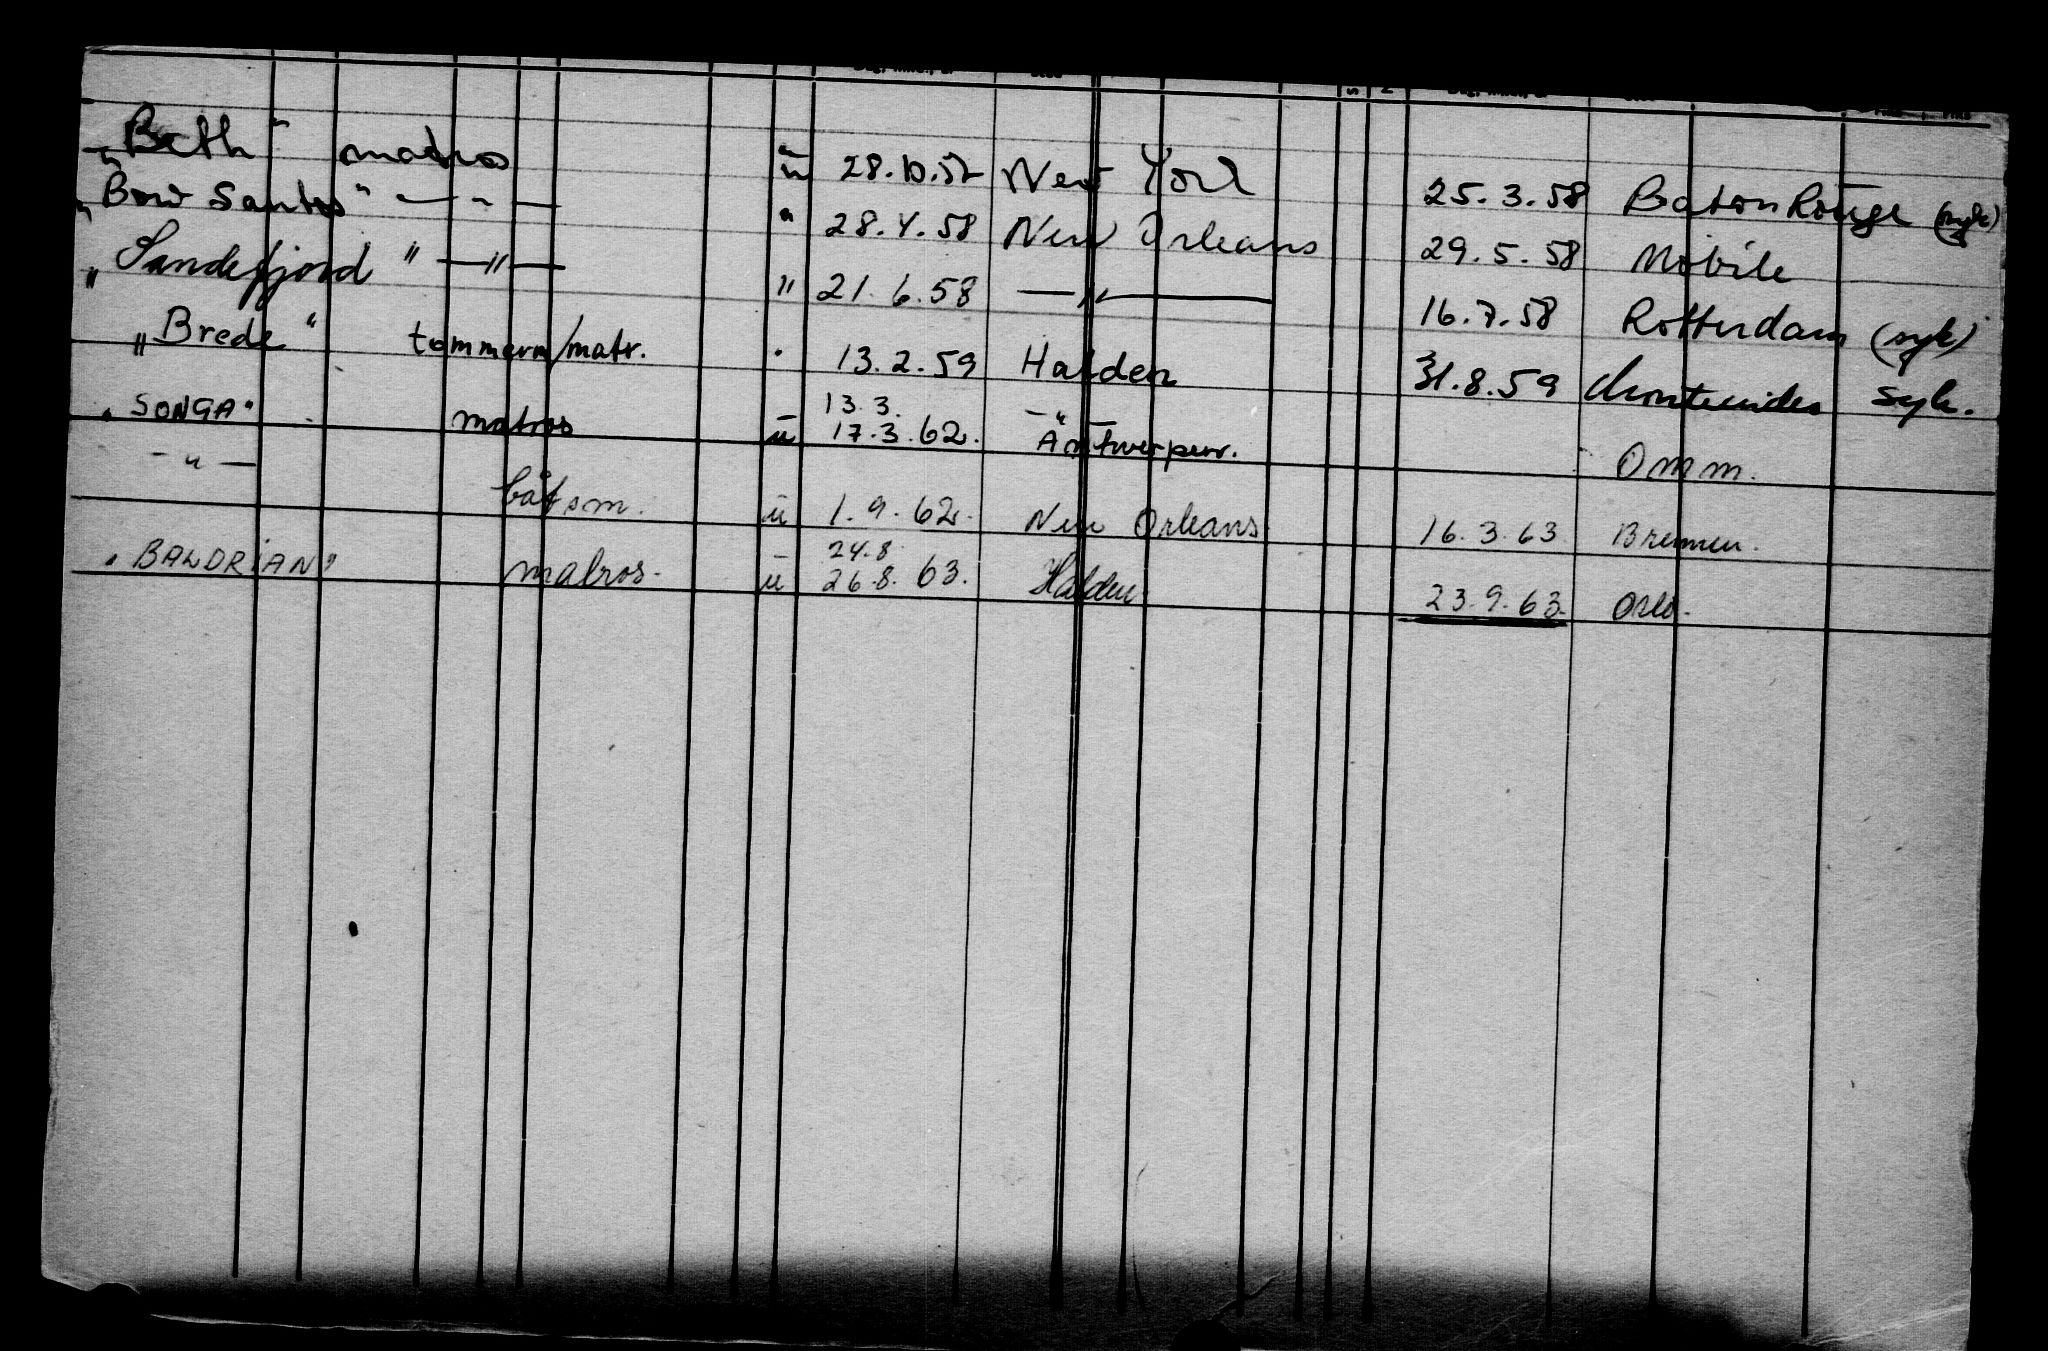 "Beth" matros ū 28.10.57 New York 25.3.58 Baton Rouge (syk)
"Bow Santos" — " — " 28.4.58 New Orleans 29.5.58 Mobile
"Sandefjord" — " — " 21.6.58 — " — 16.7.58 Rotterdam (syk)
"Brede" tømmerm/matr. " 13.2.59 Halden 31.8.59 Montevideo syk.
"SONGA" matros ū 13.3. 17.3.62. — " — Antwerpen. Omm.
— " — båtsm. ū 1.9.62. New Orleans 16.3.63 Bremen.
"BALDRIAN" matros. ū 24.8 26.8.63. Halden 23.9.63. Oslo.